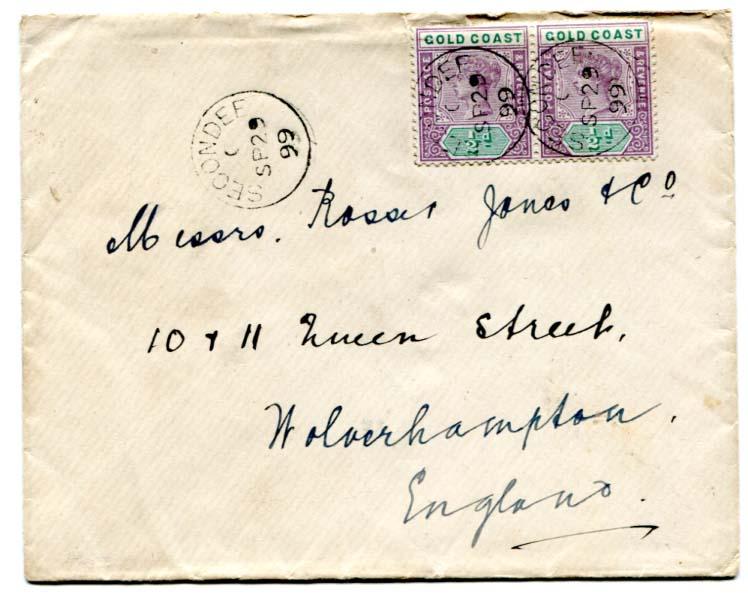 GOLD COAST GOLD COAST
POSTAGE & REVENUE POSTAGE & REVENUE
½d ½d
SECONDEE
C
SP 29
99
SECONDEE
C
SP 29
99
SECONDEE
C
SP 29
99
Messrs. Rosser Jones & Co
10 & 11 Queen Street,
Wolverhampton,
England.